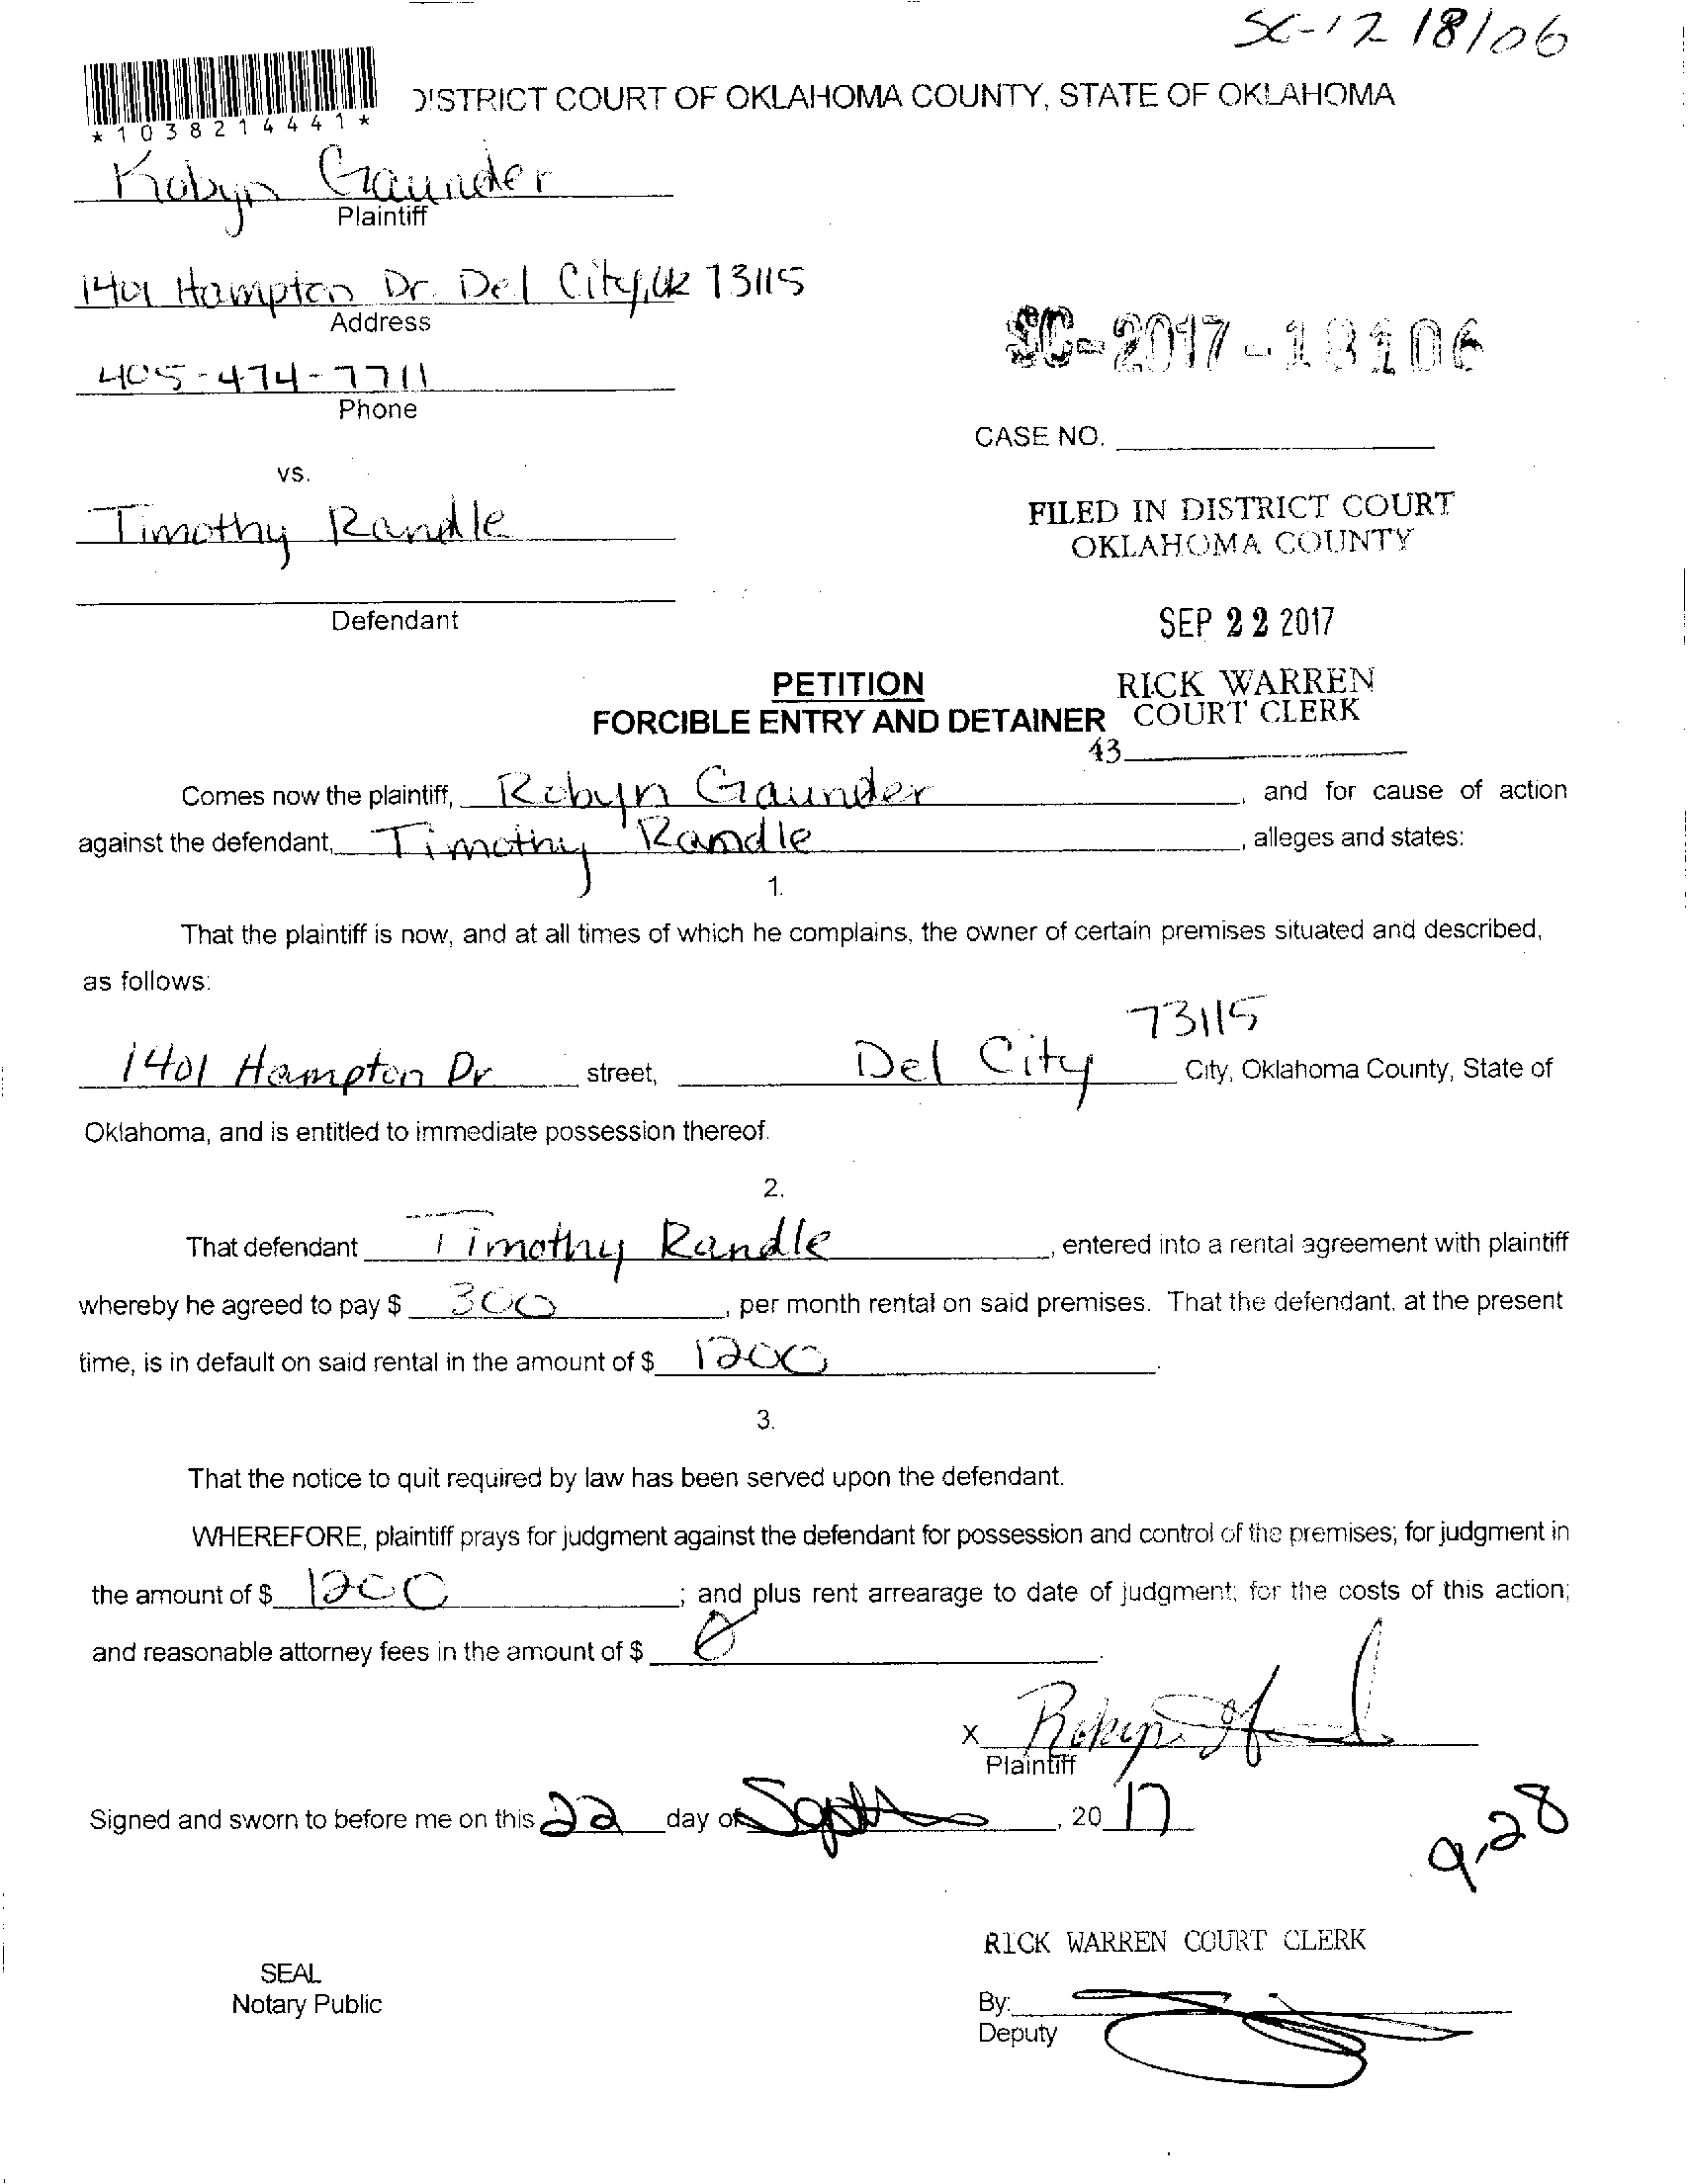 SC-17 18106
*1038214441*
DISTRICT COURT OF OKLAHOMA COUNTY, STATE OF OKLAHOMA
Robyn Gaunder
Plaintiff
1401 Hampton Dr. Del City, OK 73115
Address
405-474-7711
Phone
SC-2017-18106
CASE NO.
vs.
Timothy Randle
FILED IN DISTRICT COURT
OKLAHOMA COUNTY
Defendant
SEP 22 2017
PETITION
FORCIBLE ENTRY AND DETAINER
RICK WARREN
COURT CLERK
43
Comes now the plaintiff, Robyn Gaunder, and for cause of action
against the defendant, Timothy Randle, alleges and states:
1.
That the plaintiff is now, and at all times of which he complains, the owner of certain premises situated and described,
as follows:
73115
1401 Hampton Dr street, Del City City, Oklahoma County, State of
Oklahoma, and is entitled to immediate possession thereof.
2.
That defendant Timothy Randle, entered into a rental agreement with plaintiff
whereby he agreed to pay $ 300, per month rental on said premises. That the defendant, at the present
time, is in default on said rental in the amount of $ 1200.
3.
That the notice to quit required by law has been served upon the defendant.
WHEREFORE, plaintiff prays for judgment against the defendant for possession and control of the premises; for judgment in
the amount of $ 1200; and plus rent arrearage to date of judgment; for the costs of this action;
and reasonable attorney fees in the amount of $ 0.
X Robyn
Plaintiff
Signed and sworn to before me on this 22 day of Sept, 20 17
9.28
RICK WARREN COURT CLERK
SEAL
Notary Public
By:
Deputy